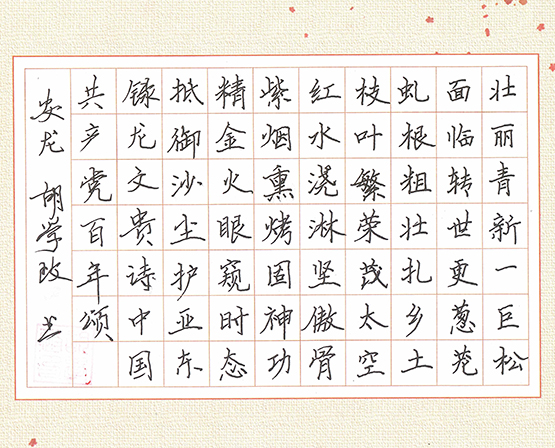 壮丽青新一巨松
面临转世更葱茏
虬根粗壮扎乡土
枝叶繁荣茂太空
红水浇淋坚傲骨
紫烟熏烤固神功
精金火眼窥时态
抵御沙尘护亚东
録龙文贵诗中国
共产党百年颂
安龙 胡学 书